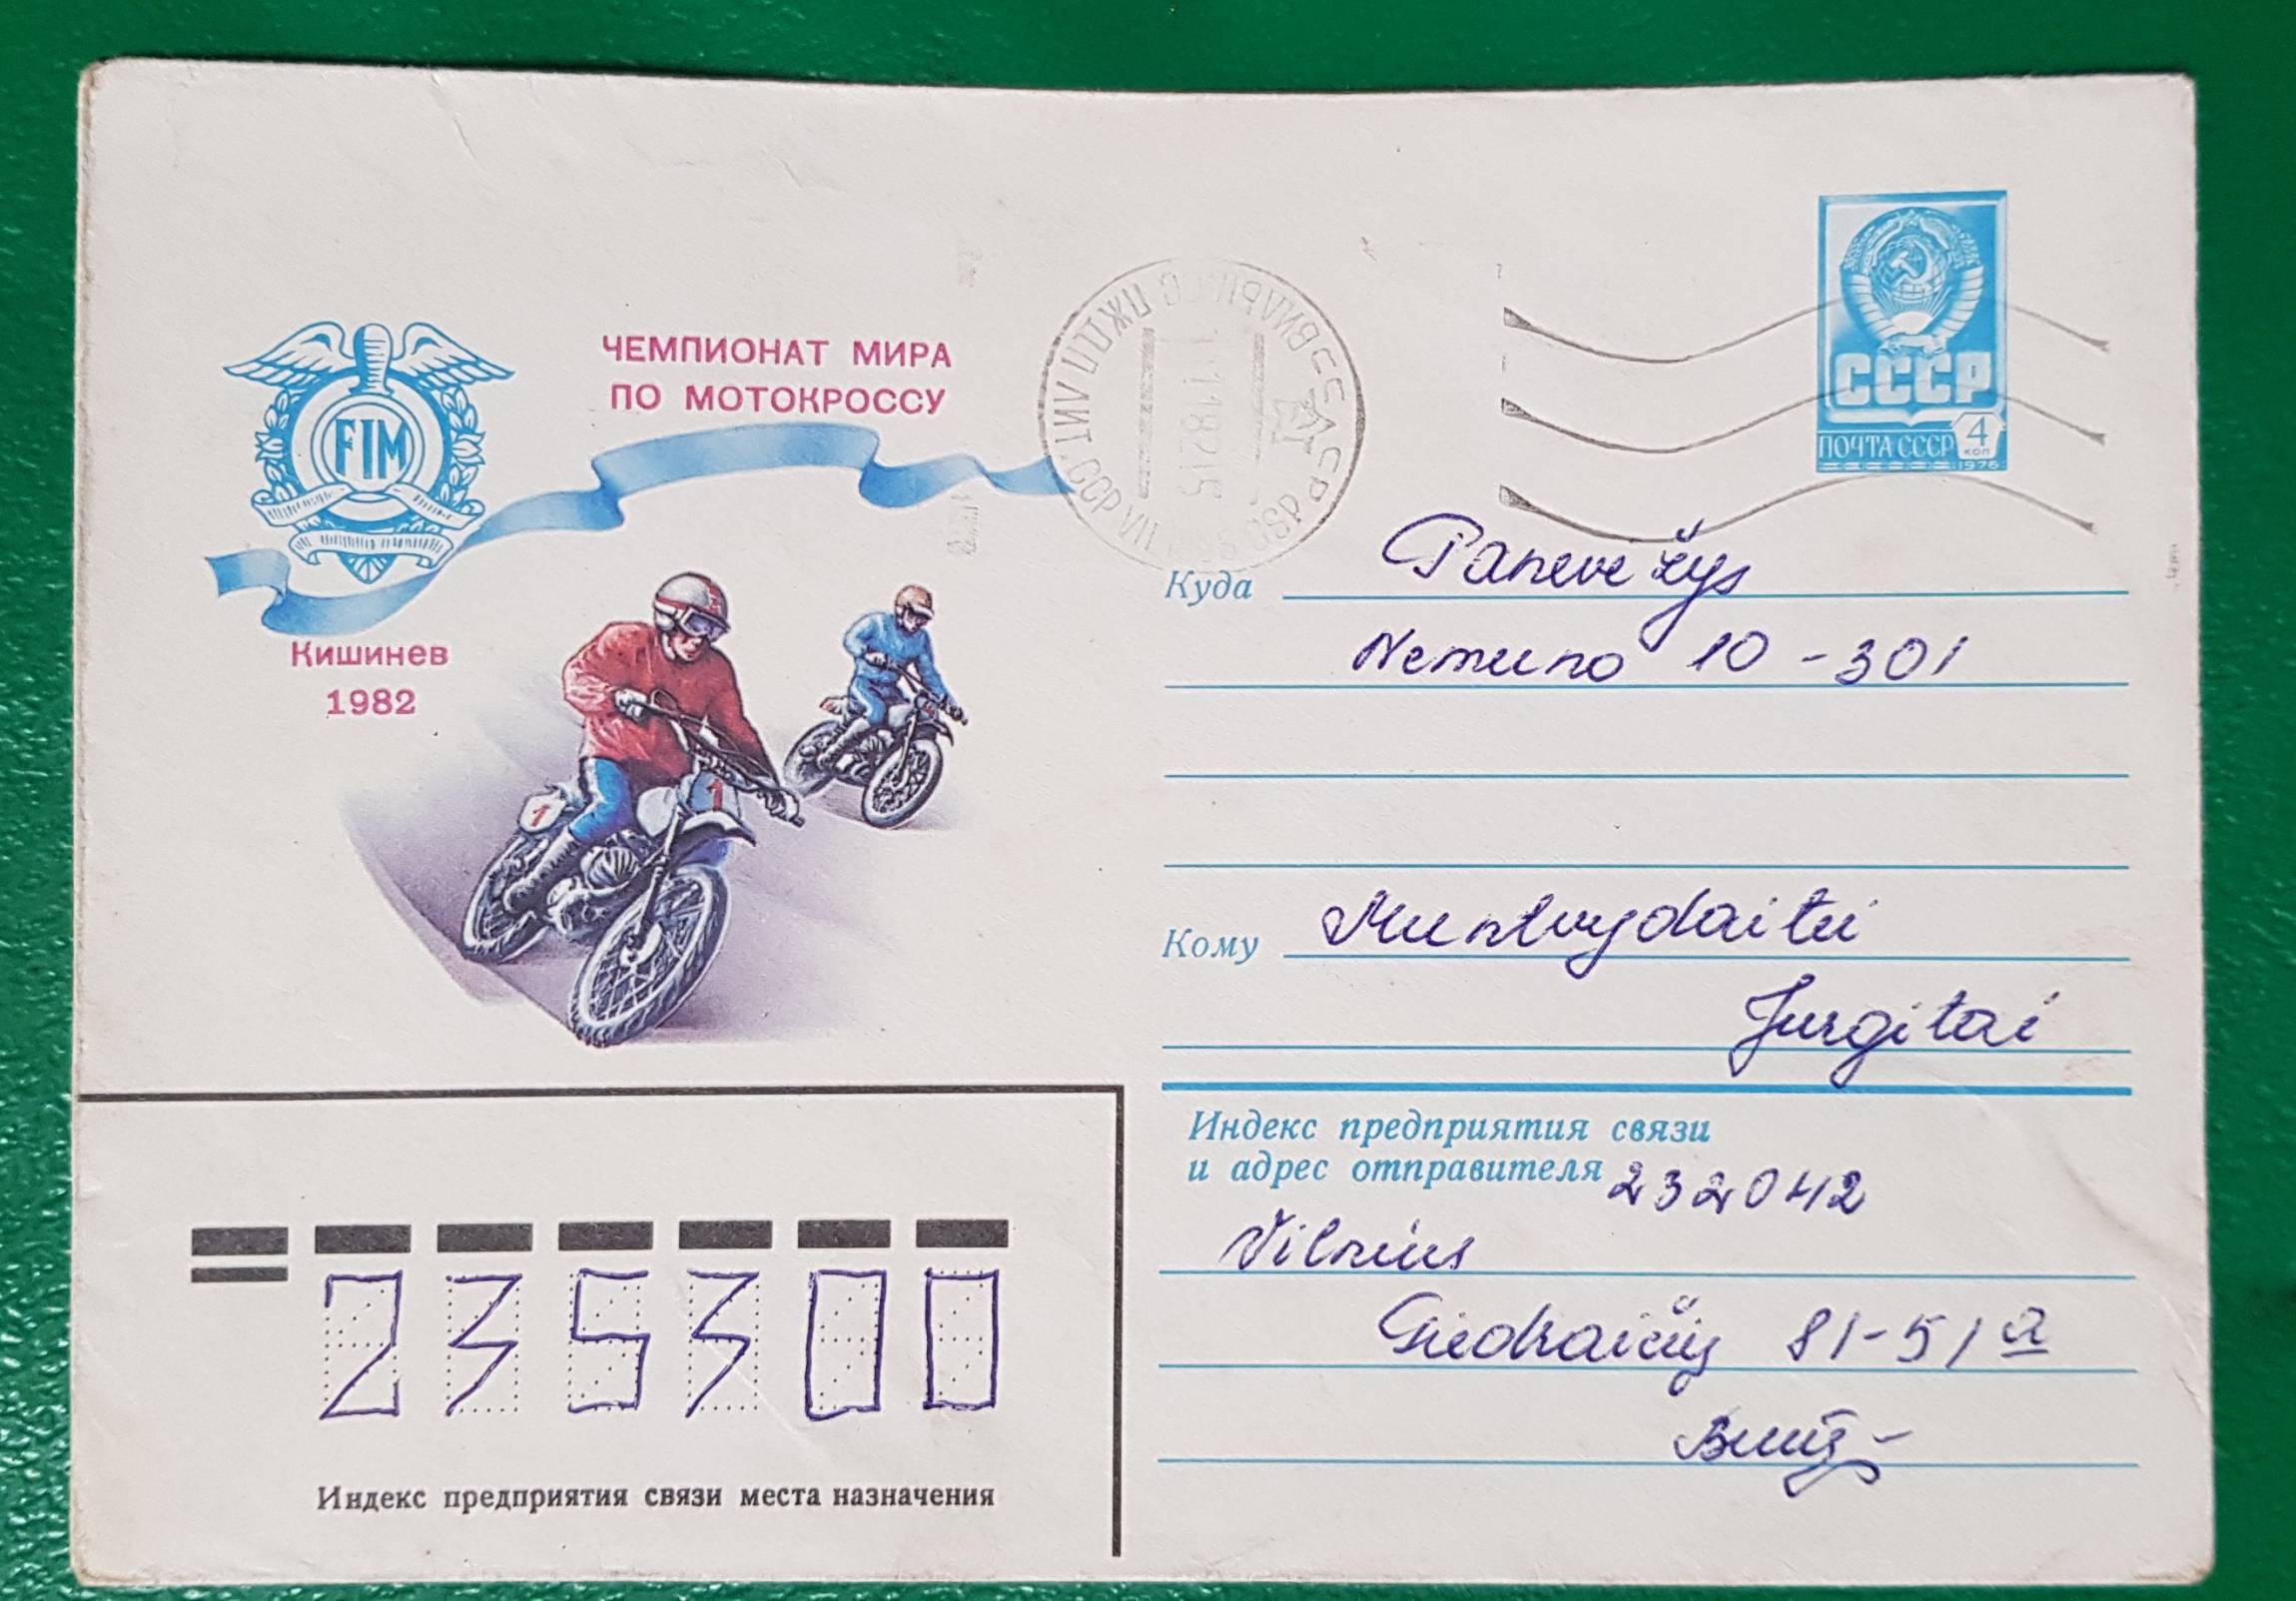 FIM
ЧЕМПИОНАТ МИРА
ПО МОТОКРОССУ
Кишинев
1982
1
1
СССР
ПОЧТА СССР 4
коп
1976
Куда Panevežys
Nemuno 10-301
Кому Muntvydaitei
Jurgitai
Индекс предприятия связи
и адрес отправителя 232042
Vilnius
Giedraičių 81-51a
235300
Индекс предприятия связи места назначения